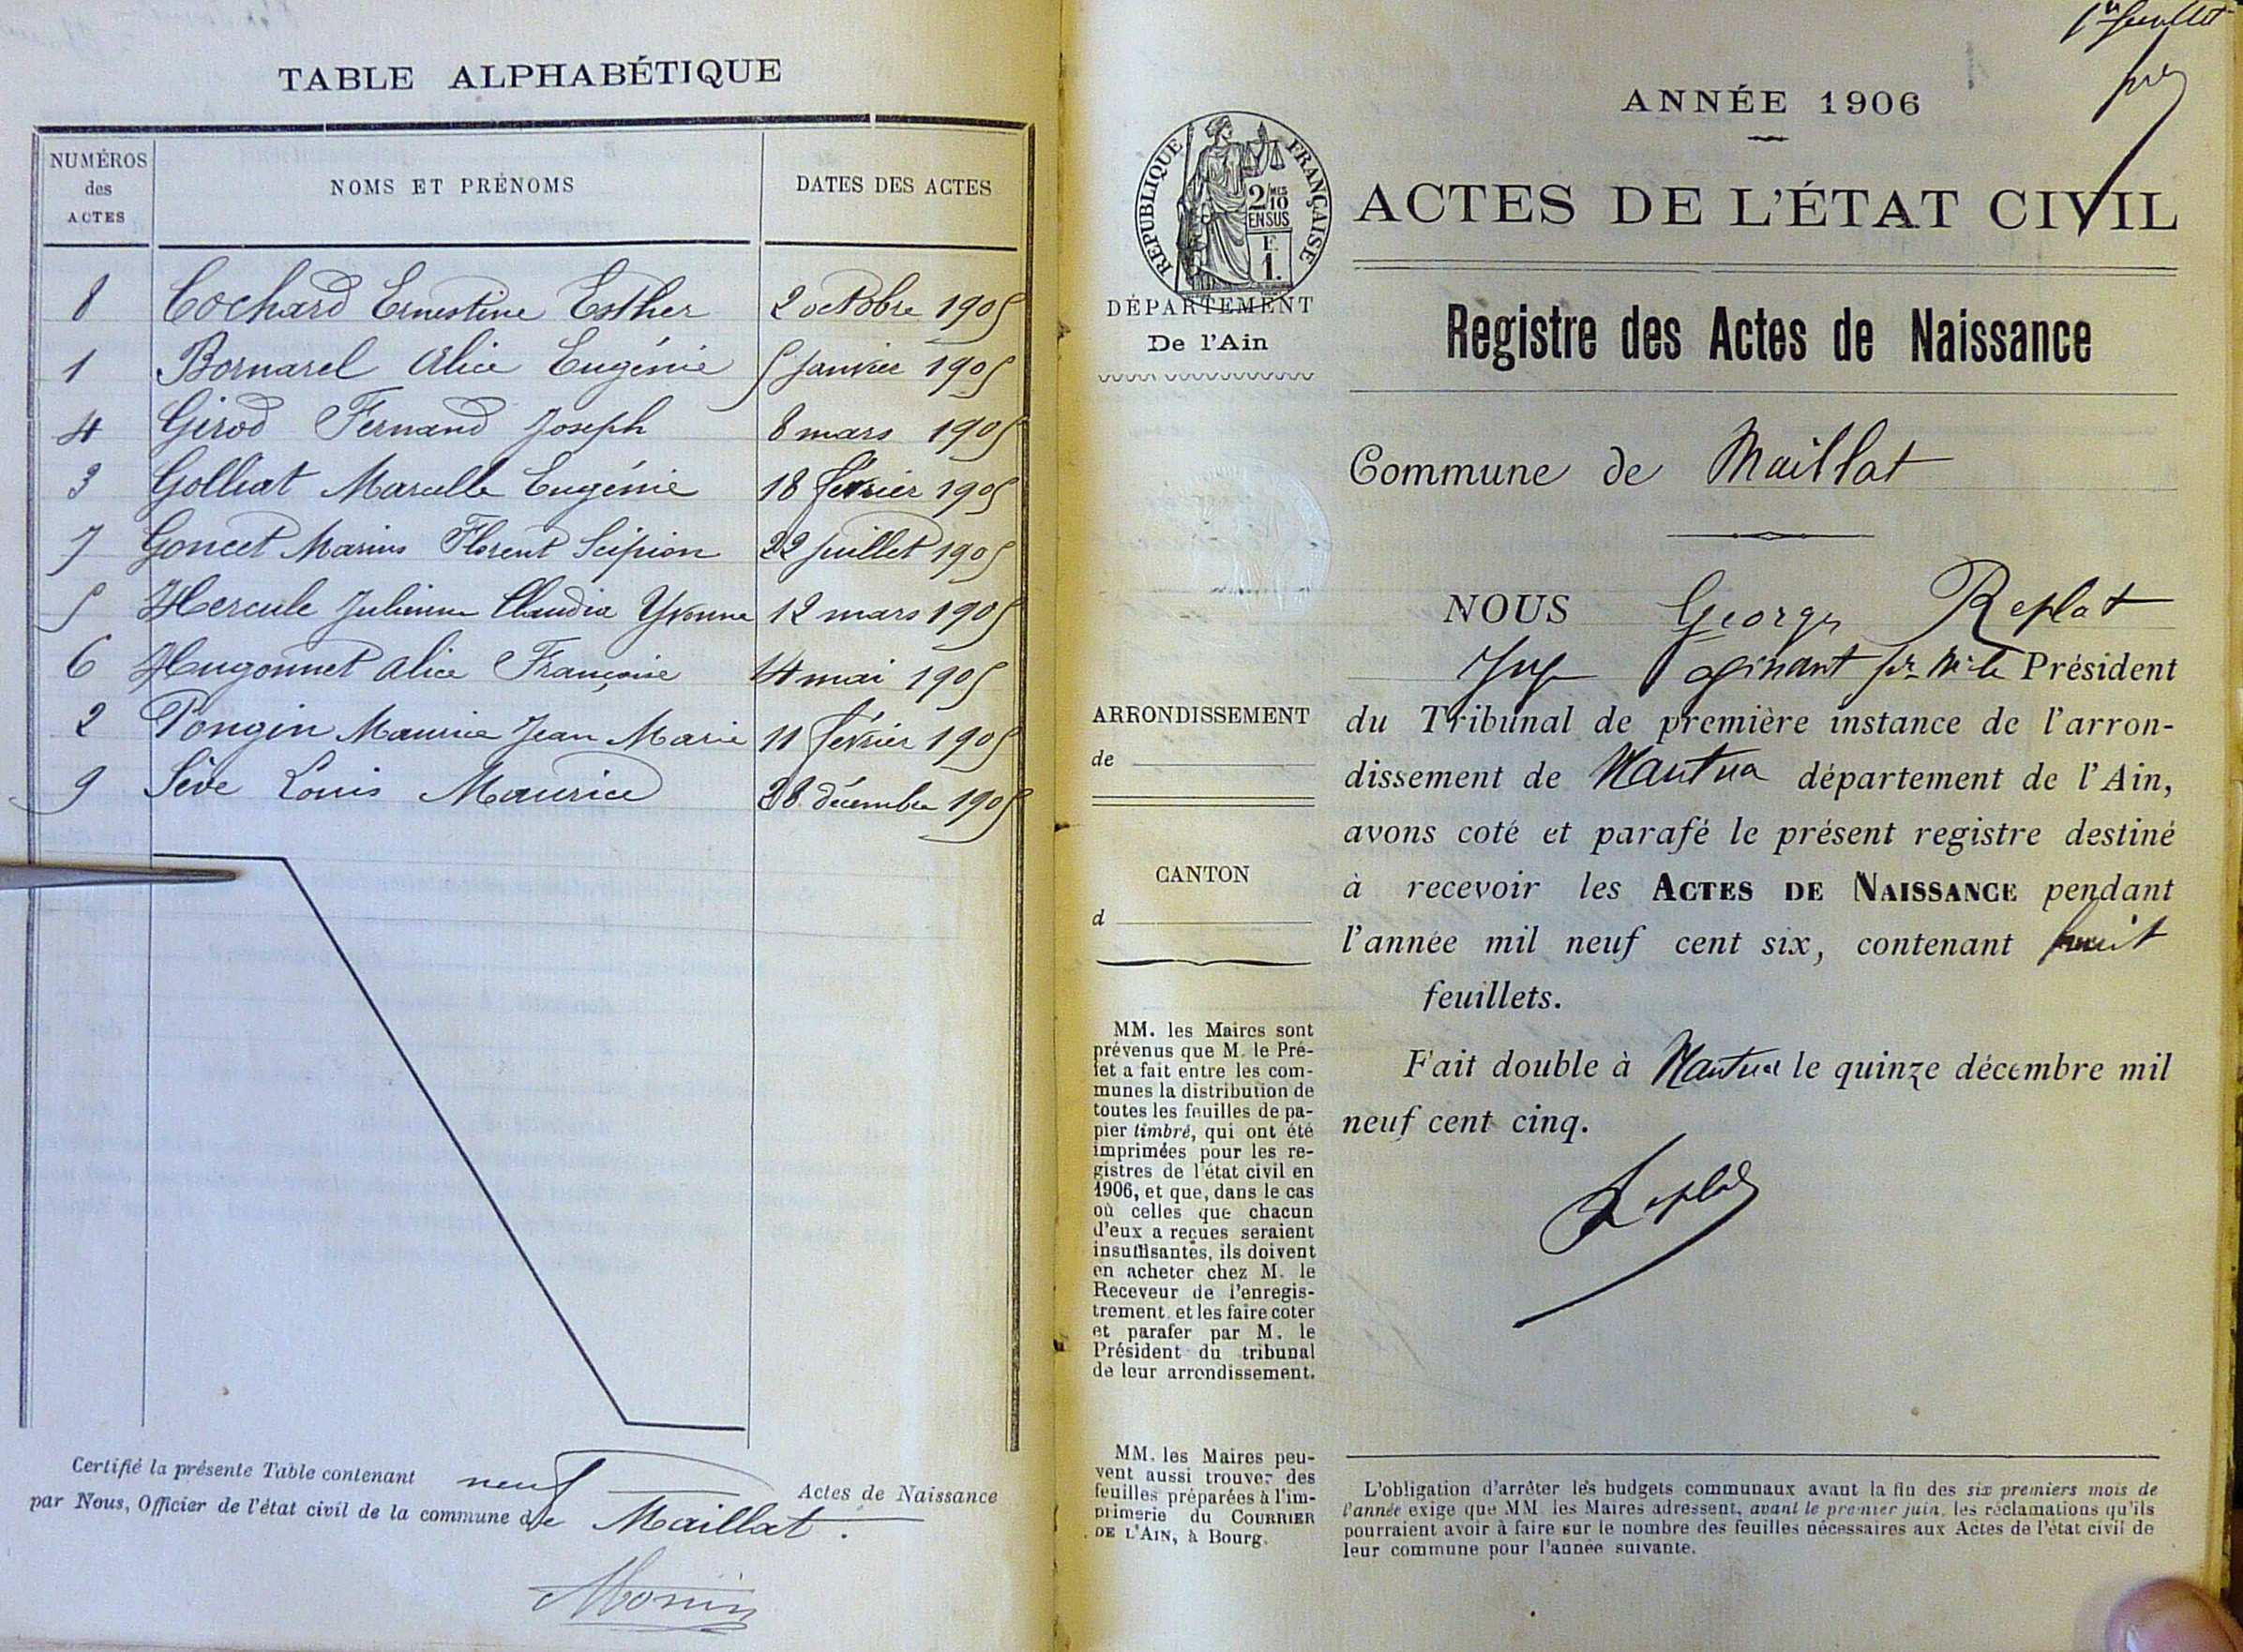 TABLE ALPHABÉTIQUE
NUMÉROS des ACTES
NOMS ET PRÉNOMS
DATES DES ACTES
8 Cochard Ernestine Esther 2 octobre 1905
1 Bornarel Alice Eugénie 5 janvier 1905
4 Girod Fernand Joseph 8 mars 1905
3 Golliat Marcelle Eugénie 18 février 1905
7 Goncet Marius Florent Scipion 22 juillet 1905
5 Hercule Julienne Claudia Yvonne 12 mars 1905
6 Hugonnet Alice Françoise 14 mai 1905
2 Pongin Maurice Jean Marie 11 février 1905
9 Sève Louis Maurice 28 décembre 1905
Certifié la présente Table contenant neuf Actes de Naissance
par Nous, Officier de l'état civil de la commune de Maillat.
Monin
1er feuillet
ANNÉE 1906
RÉPUBLIQUE FRANÇAISE
2/10 MES
EN SUS
F.
1.
ACTES DE L'ÉTAT CIVIL
DÉPARTEMENT
De l'Ain
Registre des Actes de Naissance
Commune de Maillat
NOUS Georges Replat
Juge Président
du Tribunal de première instance de l'arron-
dissement de Nantua département de l'Ain,
avons coté et parafé le présent registre destiné
à recevoir les ACTES DE NAISSANCE pendant
l'année mil neuf cent six, contenant huit
feuillets.
Fait double à Nantua le quinze décembre mil
neuf cent cinq.
Replat
ARRONDISSEMENT
de
CANTON
d
MM. les Maires sont
prévenus que M. le Pré-
fet a fait entre les com-
munes la distribution de
toutes les feuilles de pa-
pier timbré, qui ont été
imprimées pour les re-
gistres de l'état civil en
1906, et que, dans le cas
où celles que chacun
d'eux a reçues seraient
insuffisantes, ils doivent
en acheter chez M. le
Receveur de l'enregis-
trement. et les faire coter
et parafer par M. le
Président du tribunal
de leur arrondissement.
MM. les Maires peu-
vent aussi trouver des
feuilles préparées à l'im-
primerie du COURRIER
DE L'AIN, à Bourg.
L'obligation d'arrêter les budgets communaux avant la fin des six premiers mois de
l'année exige que MM. les Maires adressent, avant le premier juin, les réclamations qu'ils
pourraient avoir à faire sur le nombre des feuilles nécessaires aux Actes de l'état civil de
leur commune pour l'année suivante.